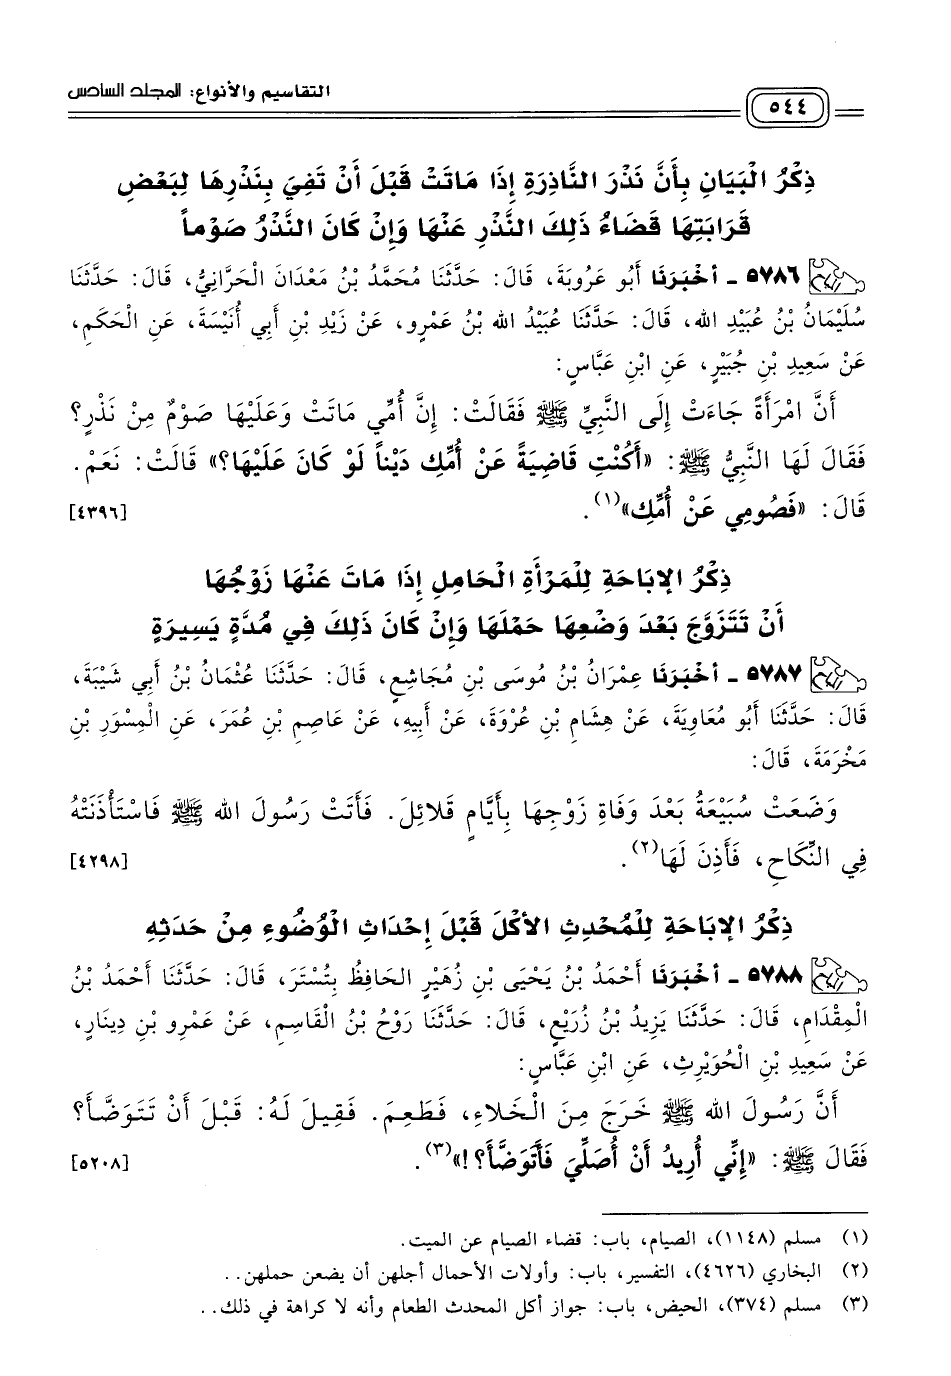 التقاسيم والأنواع: المجلد السادس
٥٤٤
ذِكْرُ الْبَيَانِ بِأَنَّ نَذْرَ النَّاذِرَةِ إِذَا مَاتَتْ قَبْلَ أَنْ تَفِيَ بِنَذْرِهَا لِبَعْضِ
قَرَابَتِهَا قَضَاءُ ذَلِكَ النَّذْرِ عَنْهَا وَإِنْ كَانَ النَّذْرُ صَوْماً
٥٧٨٦ - أخْبَرَنَا أَبُو عَرُوبَةَ، قَالَ: حَدَّثَنَا مُحَمَّدُ بْنُ مَعْدَانَ الْحَرَّانِيُّ، قَالَ: حَدَّثَنَا
سُلَيْمَانُ بْنُ عُبَيْدِ الله، قَالَ: حَدَّثَنَا عُبَيْدُ الله بْنُ عَمْرٍو، عَنْ زَيْدِ بْنِ أَبِي أُنَيْسَةَ، عَنِ الْحَكَمِ،
عَنْ سَعِيدِ بْنِ جُبَيْرٍ، عَنِ ابْنِ عَبَّاسٍ:
أَنَّ امْرَأَةً جَاءَتْ إِلَى النَّبِيِّ ﷺ فَقَالَتْ: إِنَّ أُمِّي مَاتَتْ وَعَلَيْهَا صَوْمٌ مِنْ نَذْرٍ؟
فَقَالَ لَهَا النَّبِيُّ ﷺ: «أَكُنْتِ قَاضِيَةً عَنْ أُمِّكِ دَيْناً لَوْ كَانَ عَلَيْهَا؟» قَالَتْ: نَعَمْ.
قَالَ: «فَصُومِي عَنْ أُمِّكِ»(١). [٤٣٩٦]
ذِكْرُ الإبَاحَةِ لِلْمَرْأَةِ الْحَامِلِ إِذَا مَاتَ عَنْهَا زَوْجُهَا
أَنْ تَتَزَوَّجَ بَعْدَ وَضْعِهَا حَمْلَهَا وَإِنْ كَانَ ذَلِكَ فِي مُدَّةٍ يَسِيرَةٍ
٥٧٨٧ - أخْبَرَنَا عِمْرَانُ بْنُ مُوسَى بْنِ مُجَاشِعٍ، قَالَ: حَدَّثَنَا عُثْمَانُ بْنُ أَبِي شَيْبَةَ،
قَالَ: حَدَّثَنَا أَبُو مُعَاوِيَةَ، عَنْ هِشَامِ بْنِ عُرْوَةَ، عَنْ أَبِيهِ، عَنْ عَاصِمِ بْنِ عُمَرَ، عَنِ الْمِسْوَرِ بْنِ
مَخْرَمَةَ، قَالَ:
وَضَعَتْ سُبَيْعَةُ بَعْدَ وَفَاةِ زَوْجِهَا بِأَيَّامٍ قَلائِلَ. فَأَتَتْ رَسُولَ الله ﷺ فَاسْتَأْذَنَتْهُ
فِي النِّكَاحِ، فَأَذِنَ لَهَا(٢). [٤٢٩٨]
ذِكْرُ الإبَاحَةِ لِلْمُحْدِثِ الأكْلَ قَبْلَ إِحْدَاثِ الْوُضُوءِ مِنْ حَدَثِهِ
٥٧٨٨ - أخْبَرَنَا أَحْمَدُ بْنُ يَحْيَى بْنِ زُهَيْرٍ الحَافِظُ بِتُسْتَرَ، قَالَ: حَدَّثَنَا أَحْمَدُ بْنُ
الْمِقْدَامِ، قَالَ: حَدَّثَنَا يَزِيدُ بْنُ زُرَيْعٍ، قَالَ: حَدَّثَنَا رَوْحُ بْنُ الْقَاسِمِ، عَنْ عَمْرِو بْنِ دِينَارٍ،
عَنْ سَعِيدِ بْنِ الْحُوَيْرِثِ، عَنِ ابْنِ عَبَّاسٍ:
أَنَّ رَسُولَ الله ﷺ خَرَجَ مِنَ الْخَلاءِ، فَطَعِمَ. فَقِيلَ لَهُ: قَبْلَ أَنْ تَتَوَضَّأَ؟
فَقَالَ ﷺ: «إِنِّي أُرِيدُ أَنْ أُصَلِّيَ فَأَتَوَضَّأَ؟!»(٣). [٥٢٠٨]
(١) مسلم (١١٤٨)، الصيام، باب: قضاء الصيام عن الميت.
(٢) البخاري (٤٦٢٦)، التفسير، باب: وأولات الأحمال أجلهن أن يضعن حملهن..
(٣) مسلم (٣٧٤)، الحيض، باب: جواز أكل المحدث الطعام وأنه لا كراهة في ذلك..